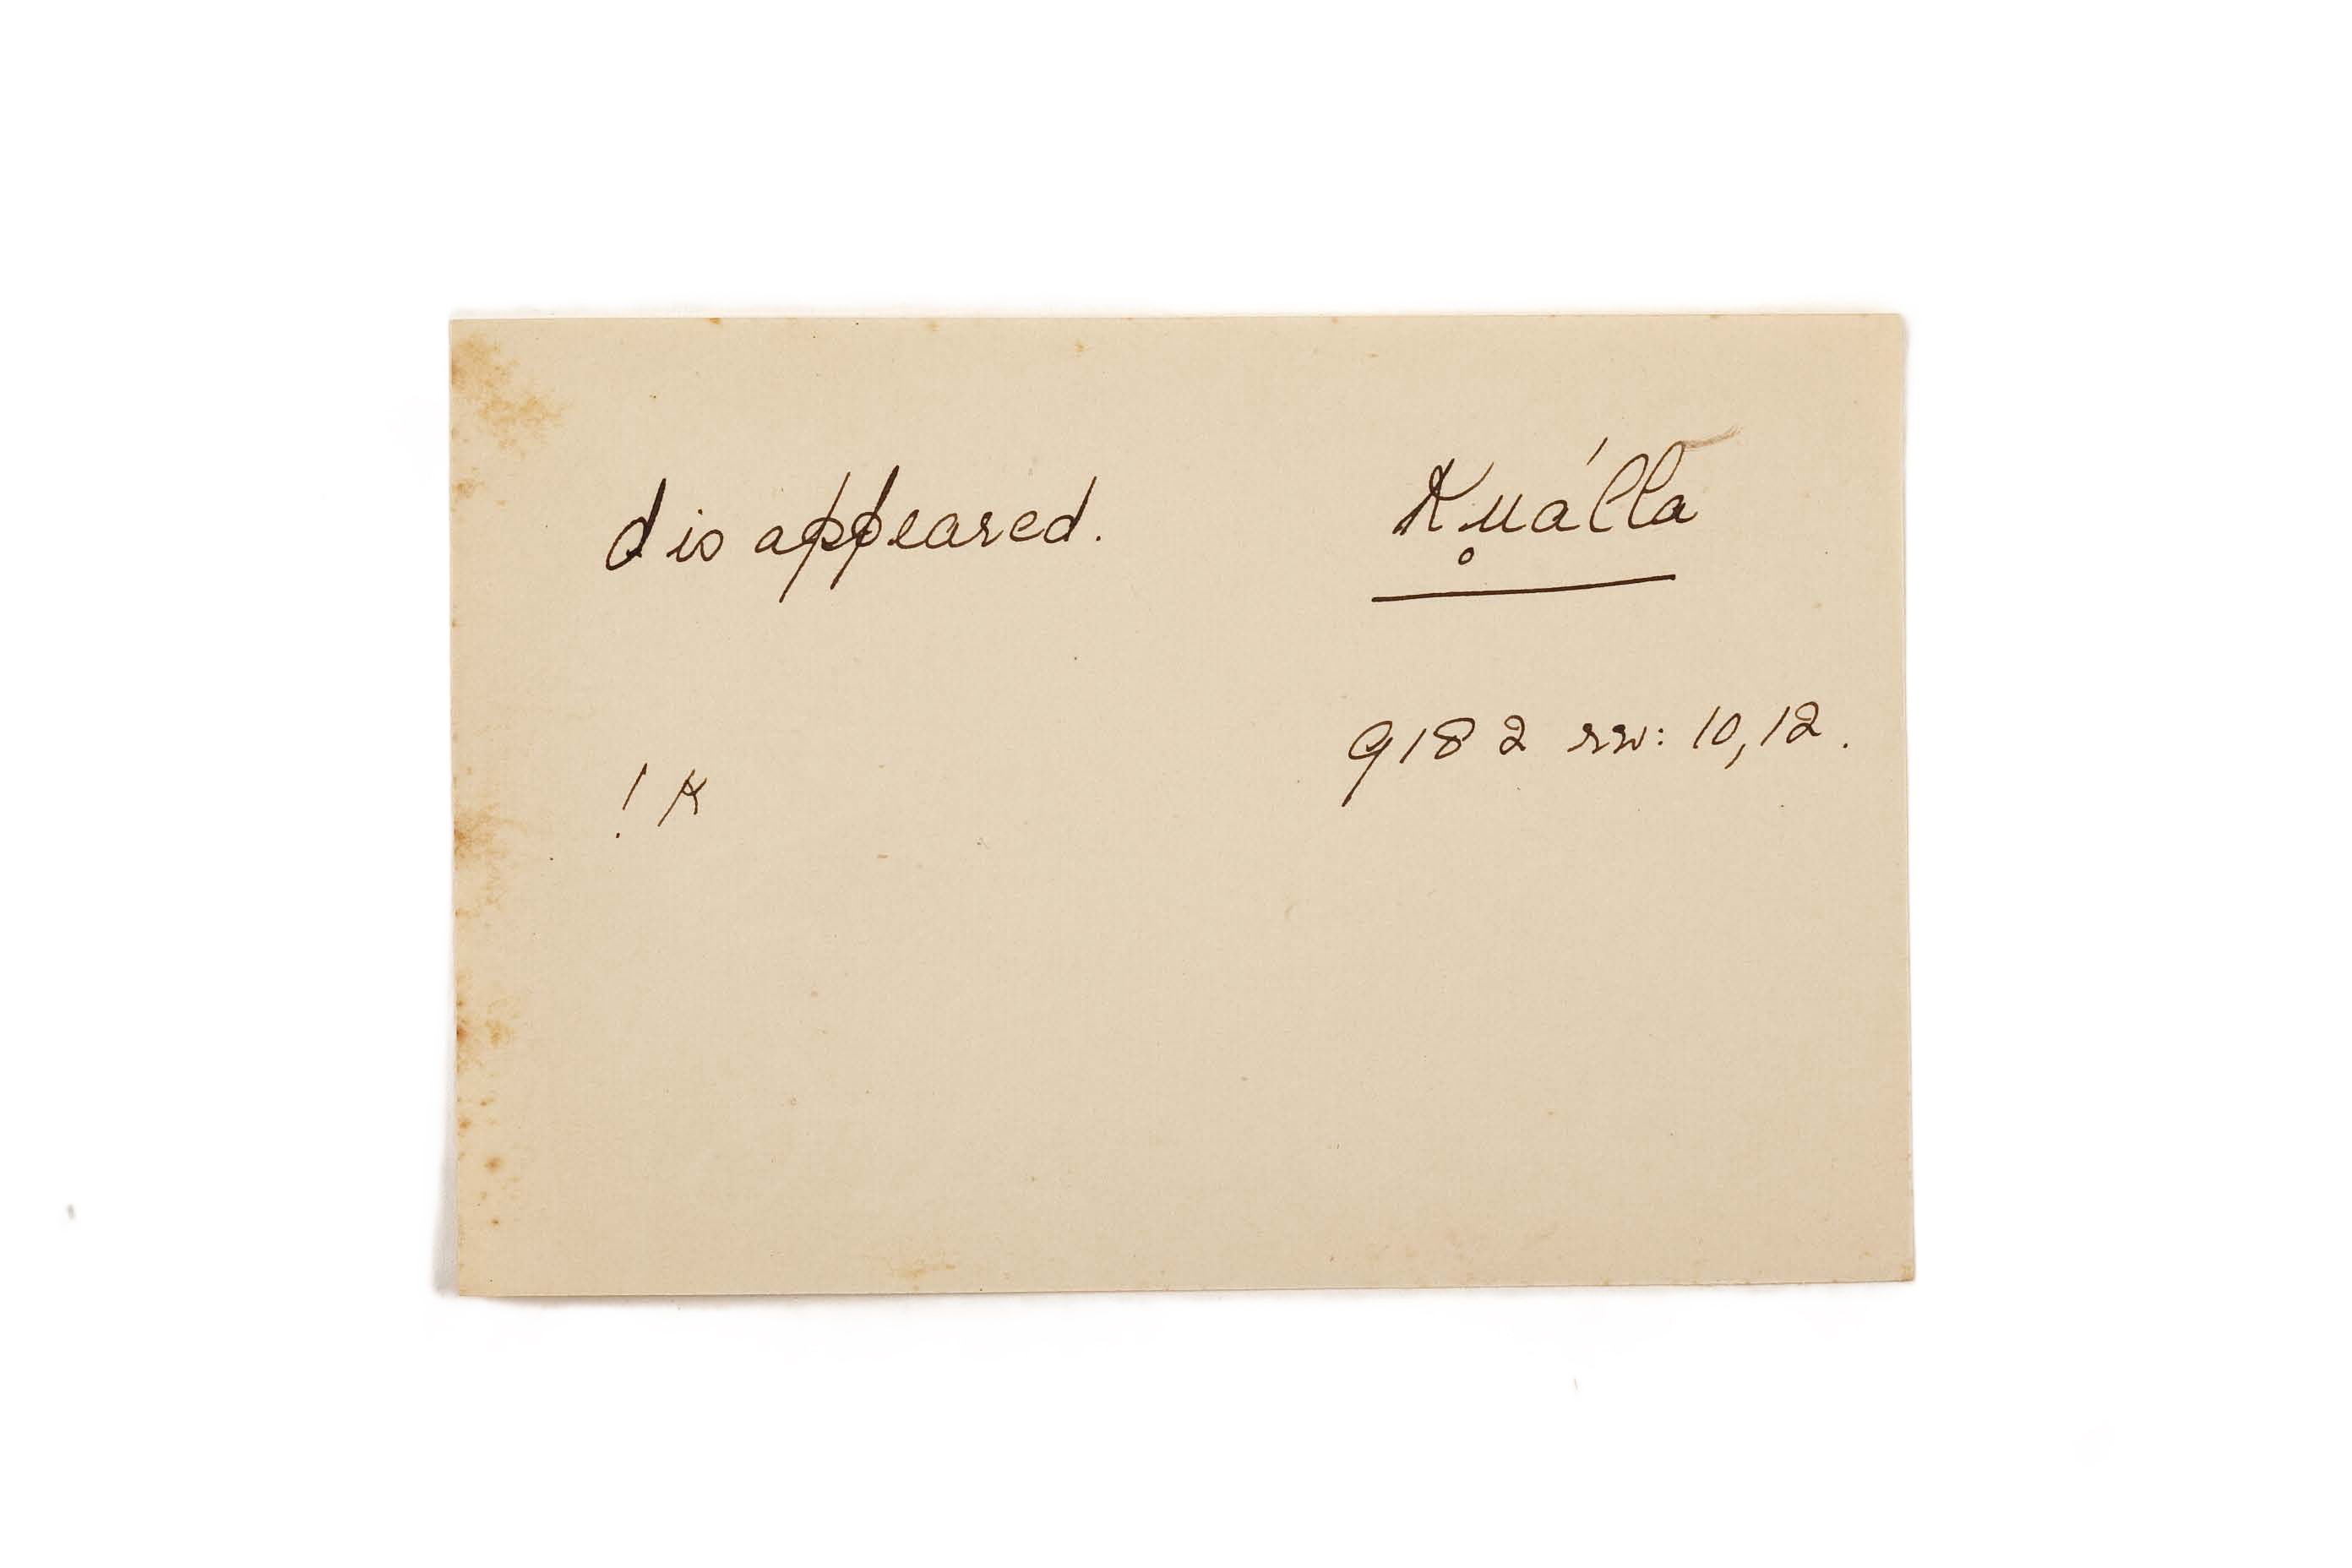 disappeared. K̥uálla
9182 rev: 10, 12.
! K